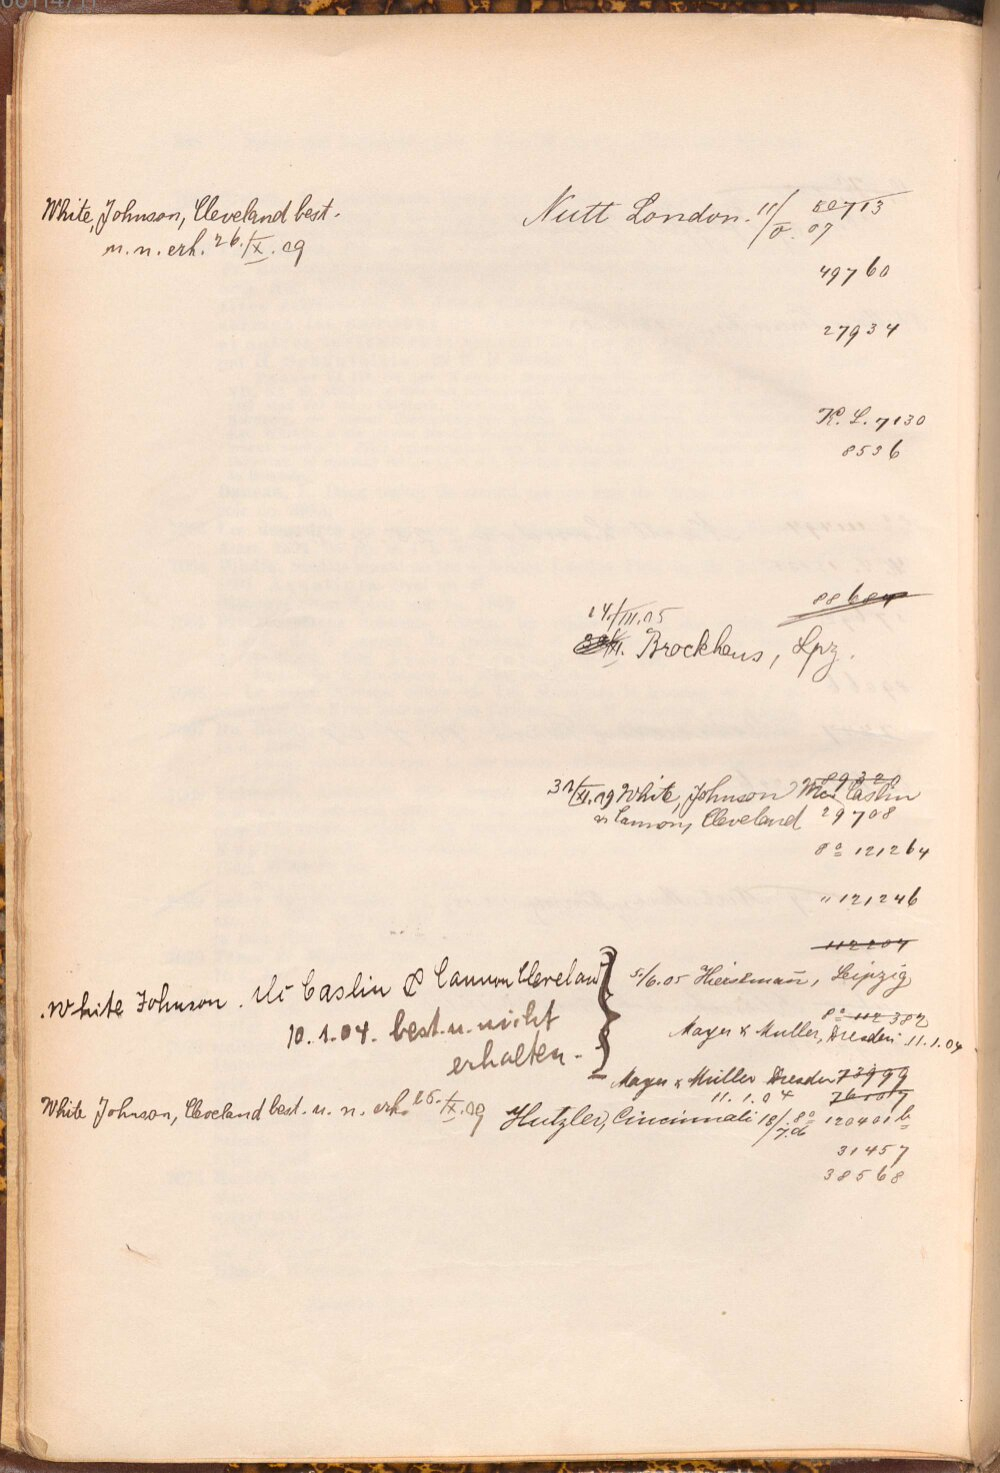 White, Johnson, Cleveland best.
u. n. erh. 26./IX. 09
Nutt London. 11/V. 07
50713
49760
27934
K. L. 7130
8536
88684
14./III. 05
Brockhaus, Lpz.
89320
31/XI. 09 White, Johnson Mc Caslin
u Cannon, Cleveland 29708
8° 121264
" 121246
112204
5/6. 05 Hiersemann, Leipzig
White Johnson. Mc Caslin & Cannon Cleveland
10. 1. 04. best. u. nicht
erhalten.
8° 112382
Mayer & Muller, Dresden 11. 1. 04
Mayer & Müller Dresden 73999
11. 1. 04 76107
White Johnson, Cleveland best. u. n. erh. 26. IX. 09
Hutzler, Cincinnati 18/7. 06 8° 120401 b
31457
38568